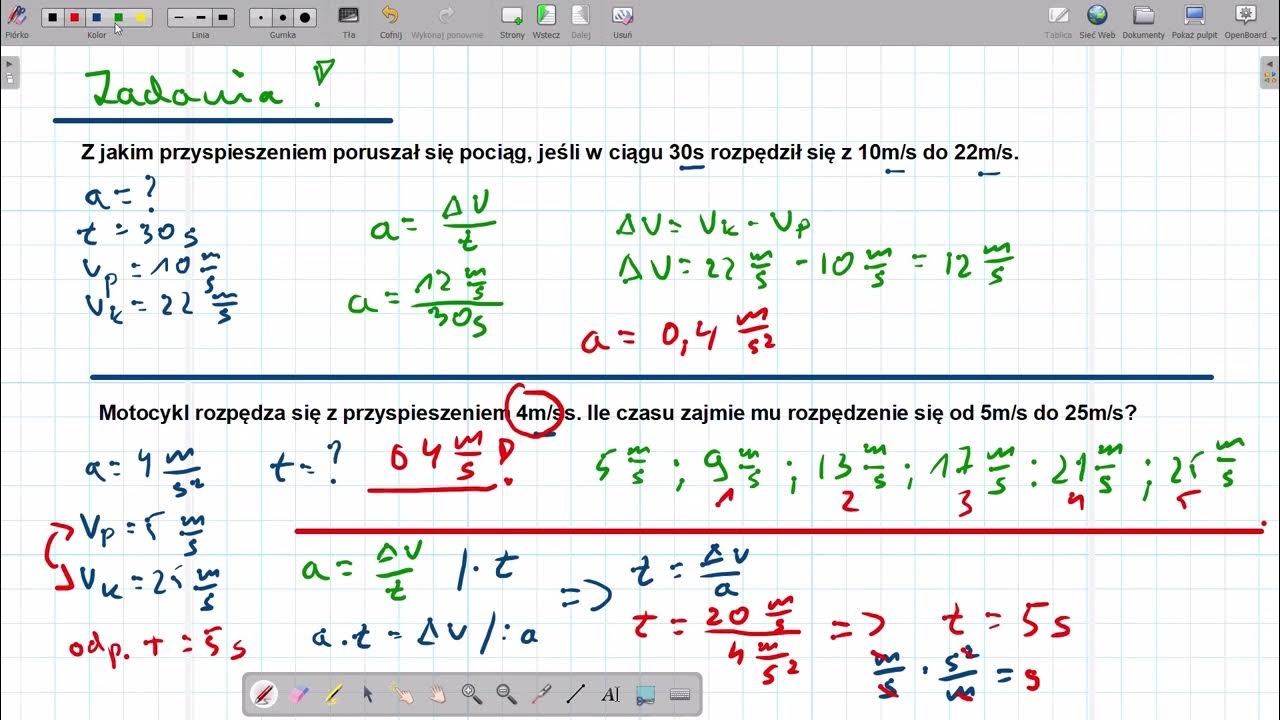 Piórko Kolor Linia Gumka Tła Cofnij Wykonaj ponownie Strony Wstecz Dalej Usuń Tablica Sieć Web Dokumenty Pokaż pulpit OpenBoard
Zadania !
Z jakim przyspieszeniem poruszał się pociąg, jeśli w ciągu 30s rozpędził się z 10m/s do 22m/s.
a = ?
t = 30 s
Vp = 10 m/s
Vk = 22 m/s
a = ΔV/t
a = 12 m/s / 30s
ΔV = Vk - Vp
ΔV = 22 m/s - 10 m/s = 12 m/s
a = 0,4 m/s²
Motocykl rozpędza się z przyspieszeniem 4m/ss. Ile czasu zajmie mu rozpędzenie się od 5m/s do 25m/s?
a = 4 m/s² t = ? o 4 m/s !
5 m/s ; 9 m/s ; 13 m/s ; 17 m/s : 21 m/s ; 25 m/s
1 2 3 4 5
Vp = 5 m/s
Vk = 25 m/s
odp. t = 5 s
a = ΔV/t /· t
a · t = ΔV /: a
=> t = ΔV/a
t = 20 m/s / 4 m/s² => t = 5 s
m/s · s²/m = s
AI